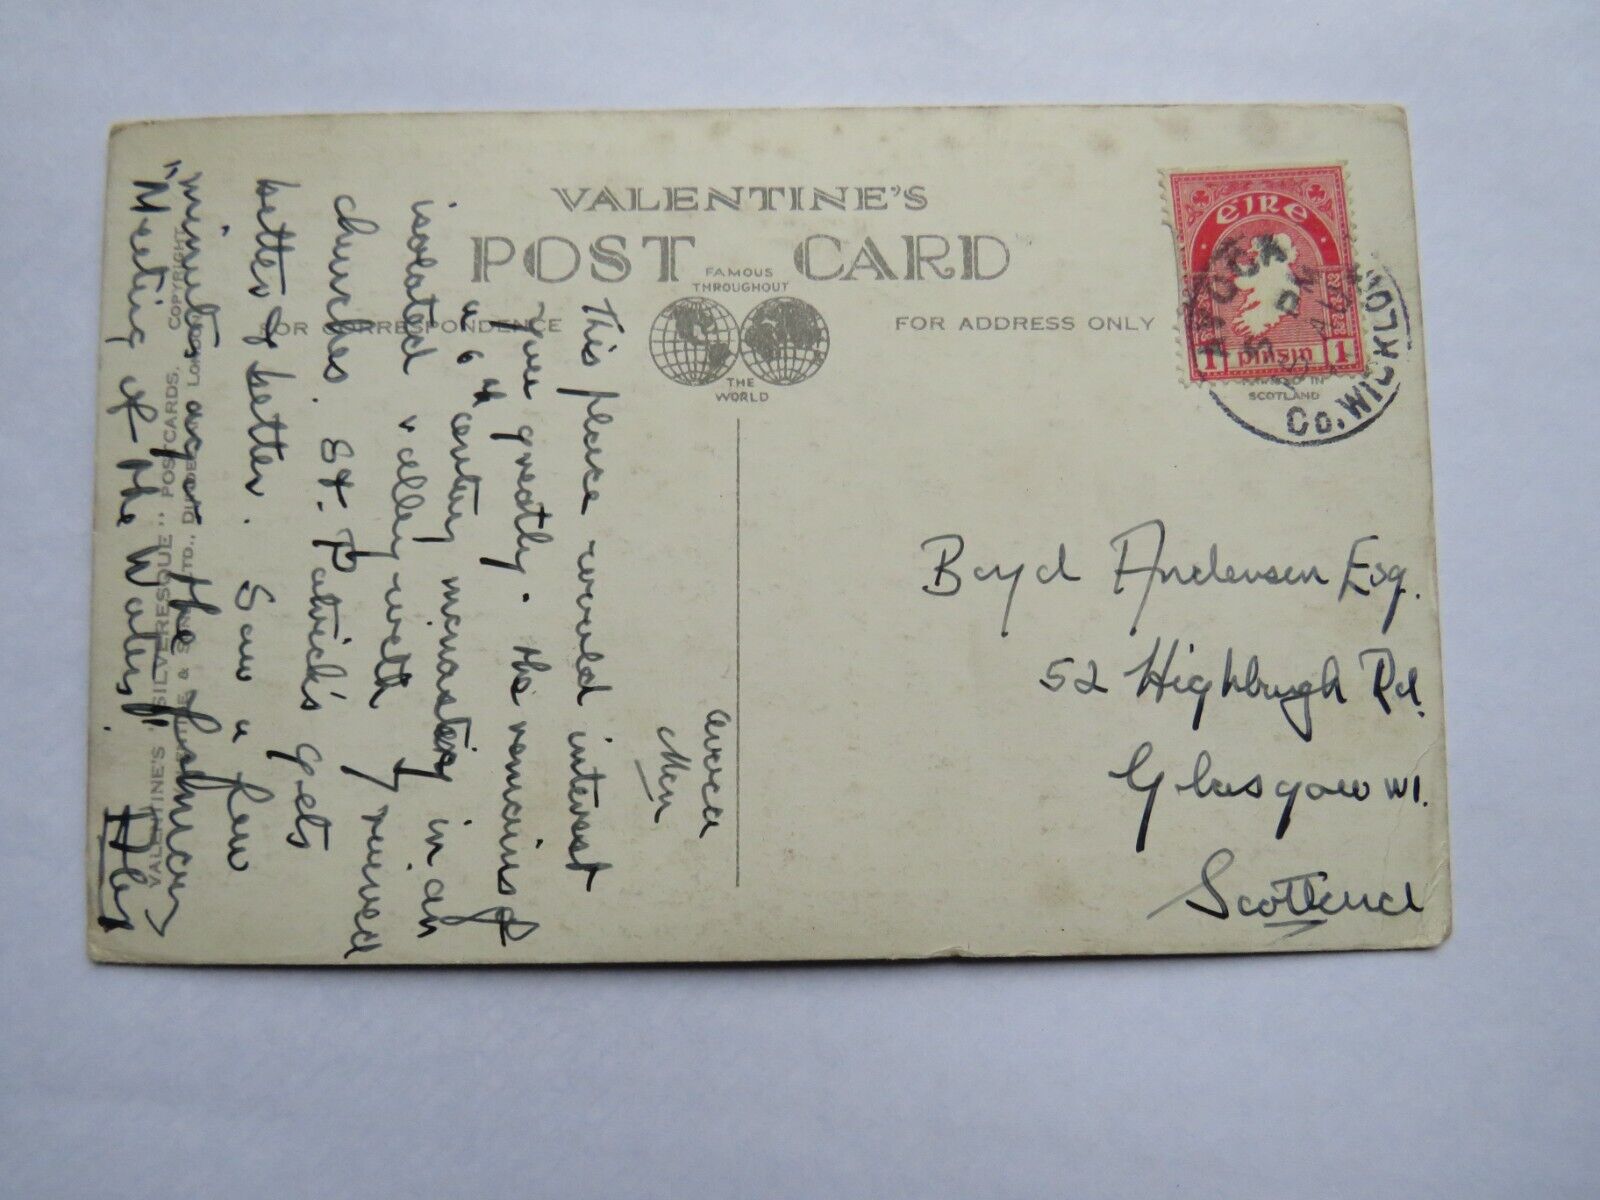 VALENTINE'S
POST CARD
FAMOUS
THROUGHOUT
THE
WORLD
FOR CORRESPONDENCE
FOR ADDRESS ONLY
PRINTED IN
SCOTLAND
EIRE
1 PINGIN 1
AVOCA
5 PM
CO. WICKLOW
Avoca
Mon
This place would interest
you greatly. The remains of
a 6th century monastery in an
isolated valley with 7 ruined
churches. St. Patrick's gets
better & better. Saw a few
minutes ago the famous
"Meeting of the Waters".
VALENTINE'S "SILVERESQUE" POSTCARDS. COPYRIGHT.
VALENTINE & SONS, LTD., DUNDEE AND LONDON
Boyd Anderson Esq.
52 Highburgh Rd.
Glasgow W1.
Scotland